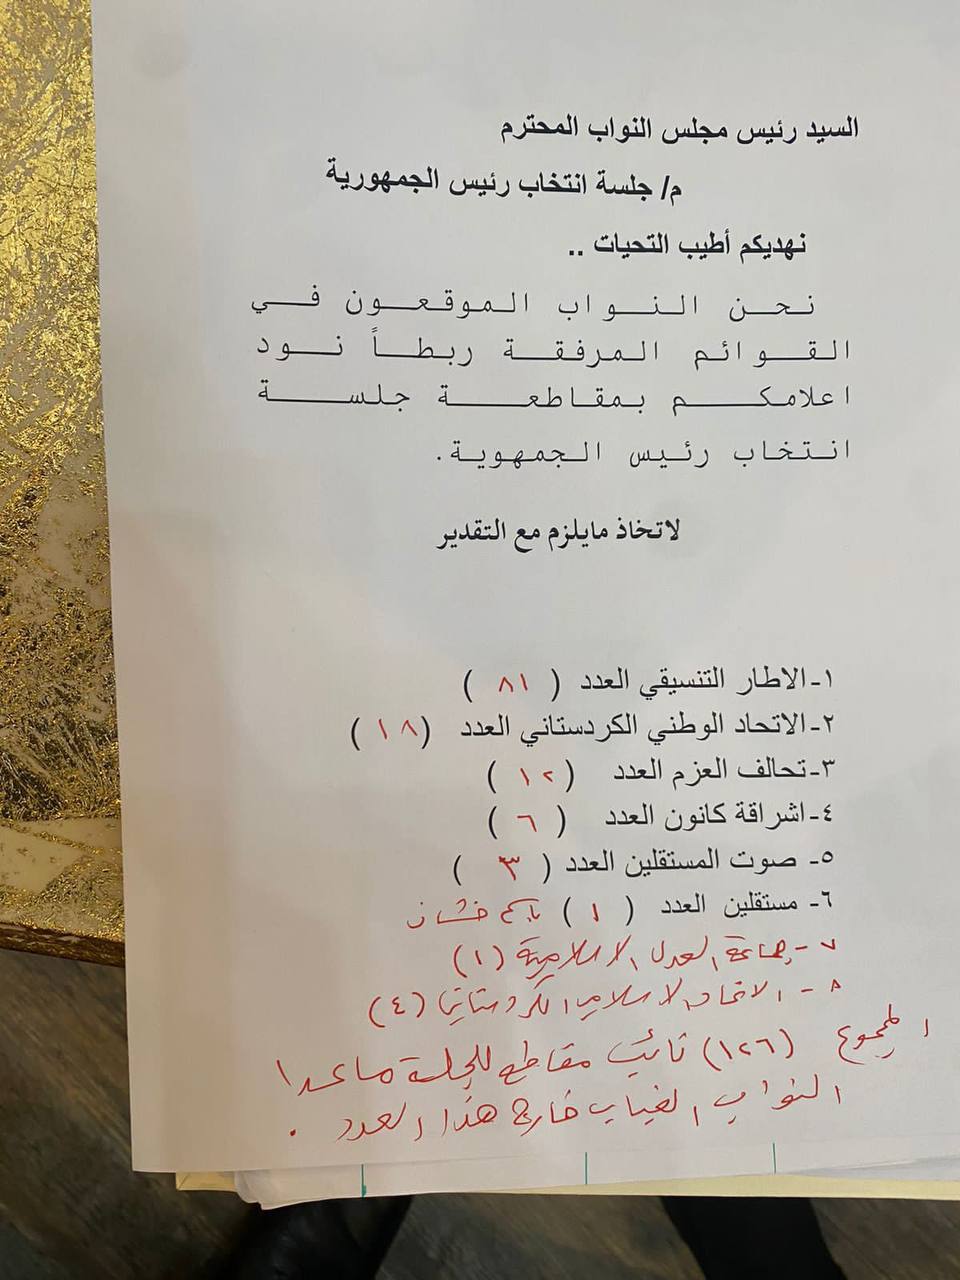 السيد رئيس مجلس النواب المحترم
م/ جلسة انتخاب رئيس الجمهورية
نهديكم أطيب التحيات ..
نحن النواب الموقعون في
القوائم المرفقة ربطاً نود
اعلامكم بمقاطعة جلسة
انتخاب رئيس الجمهوية.
لاتخاذ مايلزم مع التقدير
١-الاطار التنسيقي العدد ( ٨١ )
٢-الاتحاد الوطني الكردستاني العدد ( ١٨ )
٣-تحالف العزم العدد ( ١٢ )
٤-اشراقة كانون العدد ( ٦ )
٥- صوت المستقلين العدد ( ٣ )
٦- مستقلين العدد ( ١ ) باسم خشان
٧- جماعة العدل الاسلامية (١)
٨- الاتحاد الاسلامي الكردستاني (٤)
المجموع (١٢٦) نائب مقاطع للجلسة ماعدا
النواب الغياب خارج هذا العدد .